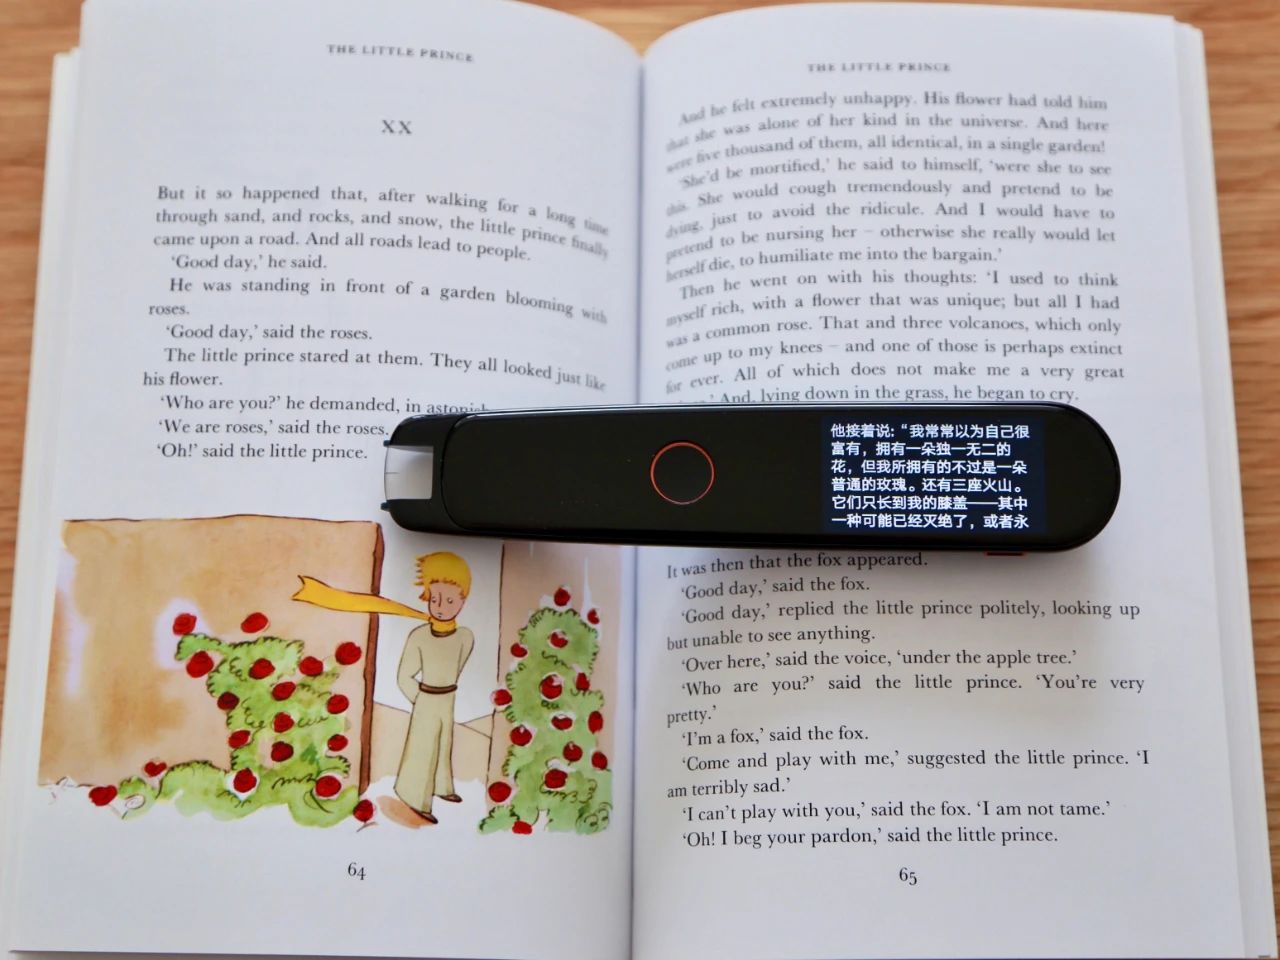 THE LITTLE PRINCE
XX
But it so happened that, after walking for a long time
through sand, and rocks, and snow, the little prince finally
came upon a road. And all roads lead to people.
‘Good day,’ he said.
He was standing in front of a garden blooming with
roses.
‘Good day,’ said the roses.
The little prince stared at them. They all looked just like
his flower.
‘Who are you?’ he demanded, in
‘We are roses,’ said the roses.
‘Oh!’ said the little prince.
64
THE LITTLE PRINCE
And he felt extremely unhappy. His flower had told him
that she was alone of her kind in the universe. And here
were five thousand of them, all identical, in a single garden!
‘She’d be mortified,’ he said to himself, ‘were she to see
this. She would cough tremendously and pretend to be
dying, just to avoid the ridicule. And I would have to
pretend to be nursing her – otherwise she really would let
herself die, to humiliate me into the bargain.’
Then he went on with his thoughts: ‘I used to think
myself rich, with a flower that was unique; but all I had
was a common rose. That and three volcanoes, which only
come up to my knees – and one of those is perhaps extinct
for ever. All of which does not make me a very great
And, lying down in the grass, he began to cry.
他接着说：“我常常以为自己很
富有，拥有一朵独一无二的
花，但我所拥有的不过是一朵
普通的玫瑰。还有三座火山。
它们只长到我的膝盖——其中
一种可能已经灭绝了，或者永
It was then that the fox appeared.
‘Good day,’ said the fox.
‘Good day,’ replied the little prince politely, looking up
but unable to see anything.
‘Over here,’ said the voice, ‘under the apple tree.’
‘Who are you?’ said the little prince. ‘You’re very
pretty.’
‘I’m a fox,’ said the fox.
‘Come and play with me,’ suggested the little prince. ‘I
am terribly sad.’
‘I can’t play with you,’ said the fox. ‘I am not tame.’
‘Oh! I beg your pardon,’ said the little prince.
65